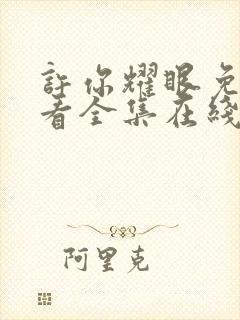 許你耀眼免
看全集在綫
阿里克